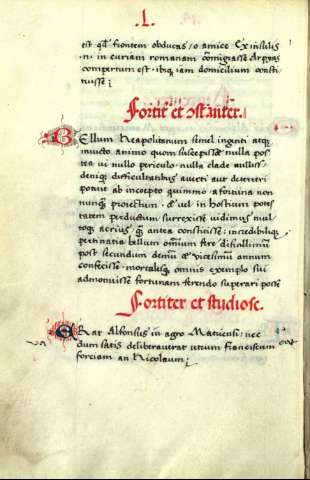 .I.
est q̃ frontem obducas / o amice Ex insulis
.n. in curiam romanam cõmigrasse Argiuas
compertum est. ibiq; iam domicilium consti
tuisse;
Fortit̃ et cõstanter.
BEllum Neapolitanum simel ingenti atq;
inuicto animo quom suscepisset nulla pos
tea ui nullo periculo nulla clade nullis
deniq; difficultatibus auerti aut deterreri
potuit ab incepto quinimmo a fortuna non
nunq̃ proiectum & uel in hostium potes
tatem perductum surrexisse uidimus mul
toq; acrius q̃ antea constitisse: incredibiliq;
pertinatia bellum omnium fere difficillimum
post secundum demũ & uicesimum annum
confecisse mortalesq; omnis exemplo sui
admonuisse fortunam ferendo superari posse
Fortiter et studiose.
ERat Alfonsus in agro Matiensi: nec
dum satis deliberauerat utrum Franciscum
forciam an Nicolaum;